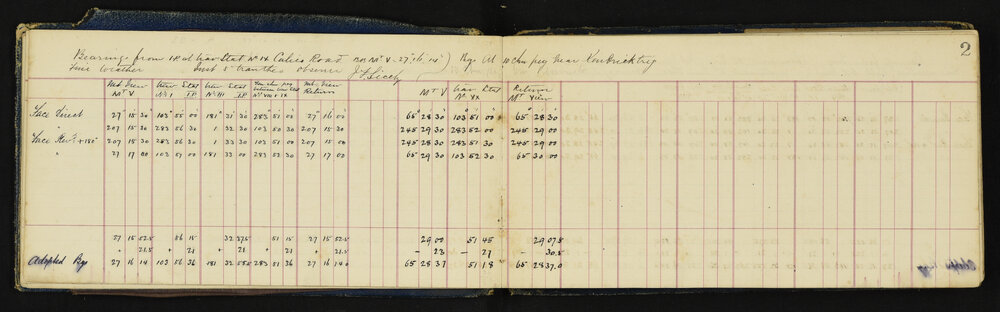 2
Bearings from I.P. at Trav Stat No 14 Cabies Road Brg Mt V - 27° 16' 14" ) Brgs At 10 chn peg near Kendrick trig
Fair Weather Inst 5" Tran theo Observer J.
Mt View Trav Stat Trav Stat Mt View
Mt V No 1 I.P. I.P. Return Mt V Trav Stat Return
No VX Mt View
Face Direct 27 15 30 103 55 00 181 31 30 283 51 00 27 16 00 65 28 30 103 51 00 65 28 30
" 207 15 30 283 56 30 1 32 30 103 50 30 207 15 30 245 29 30 283 52 00 245 29 00
Face Rev. +180° 207 15 30 283 56 30 1 33 30 103 51 30 207 15 00 245 28 30 283 51 30 245 29 00
" 27 17 00 103 57 00 181 33 00 283 52 30 27 17 00 65 29 30 103 52 30 65 30 00
27 15 52.5 56 15 32 37.5 51 15 27 15 52.5 29 00 51 45 29 07.5
+ 21.5 + 21 + 21 + 21 + 21.5 - 23 - 27 - 30.5
Adopted Brgs 27 16 14 103 56 36 181 32 58.5 283 51 36 27 16 14.0 65 28 37 51 18 65 28 37.0